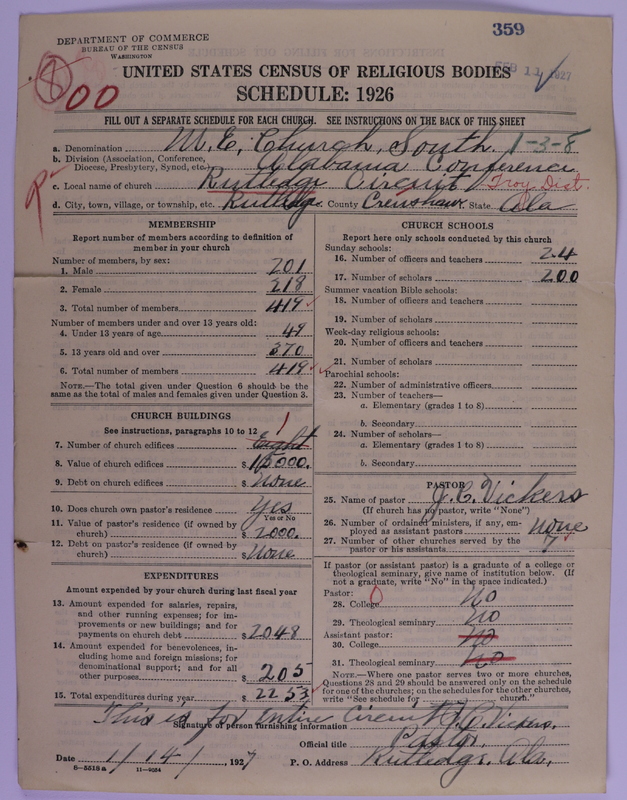 359
DEPARTMENT OF COMMERCE
BUREAU OF THE CENSUS
WASHINGTON
FEB 11 1927
8
00
UNITED STATES CENSUS OF RELIGIOUS BODIES
SCHEDULE: 1926
FILL OUT A SEPARATE SCHEDULE FOR EACH CHURCH. SEE INSTRUCTIONS ON THE BACK OF THIS SHEET
a. Denomination M. E. Church, South. 1-3-8
b. Division (Association, Conference, Diocese, Presbytery, Synod, etc.) Alabama Conference
c. Local name of church Rutledge Circuit Troy Dist.
d. City, town, village, or township, etc. Rutledge County Crenshaw State Ala
MEMBERSHIP
Report number of members according to definition of
member in your church
Number of members, by sex:
1. Male 201
2. Female 218
3. Total number of members 419
Number of members under and over 13 years old:
4. Under 13 years of age 49
5. 13 years old and over 370
6. Total number of members 419
NOTE.—The total given under Question 6 should be the
same as the total of males and females given under Question 3.
CHURCH BUILDINGS
See instructions, paragraphs 10 to 12
1
7. Number of church edifices Eight
8. Value of church edifices $
9. Debt on church edifices $ None
10. Does church own pastor's residence Yes
Yes or No
11. Value of pastor's residence (if owned by
church) $ 2000.
12. Debt on pastor's residence (if owned by
church) $ None
EXPENDITURES
Amount expended by your church during last fiscal year
13. Amount expended for salaries, repairs,
and other running expenses; for im-
provements or new buildings; and for
payments on church debt $ 2048
14. Amount expended for benevolences, in-
cluding home and foreign missions; for
denominational support; and for all
other purposes $ 205
15. Total expenditures during year $ 2253
CHURCH SCHOOLS
Report here only schools conducted by this church
Sunday schools:
16. Number of officers and teachers 24
17. Number of scholars 200
Summer vacation Bible schools:
18. Number of officers and teachers
19. Number of scholars
Week-day religious schools:
20. Number of officers and teachers
21. Number of scholars
Parochial schools:
22. Number of administrative officers
23. Number of teachers—
a. Elementary (grades 1 to 8)
b. Secondary
24. Number of scholars—
a. Elementary (grades 1 to 8)
b. Secondary
PASTOR
25. Name of pastor J. C. Vickers
(If church has no pastor, write "None")
26. Number of ordained ministers, if any, em-
ployed as assistant pastors None
27. Number of other churches served by the
pastor or his assistants 7
If pastor (or assistant pastor) is a graduate of a college or
theological seminary, give name of institution below. (If
not a graduate, write "No" in the space indicated.)
Pastor: 0
28. College No
29. Theological seminary No
Assistant pastor:
30. College No
31. Theological seminary No
NOTE.—Where one pastor serves two or more churches,
Questions 28 and 29 should be answered only on the schedule
for one of the churches; on the schedules for the other churches,
write "See schedule for church."
This is for entire Circuit
Signature of person furnishing information J. C. Vickers.
Official title Pastor.
Date 1/14/, 1927 P. O. Address Rutledge. Ala.
6—5518 a 11—9034